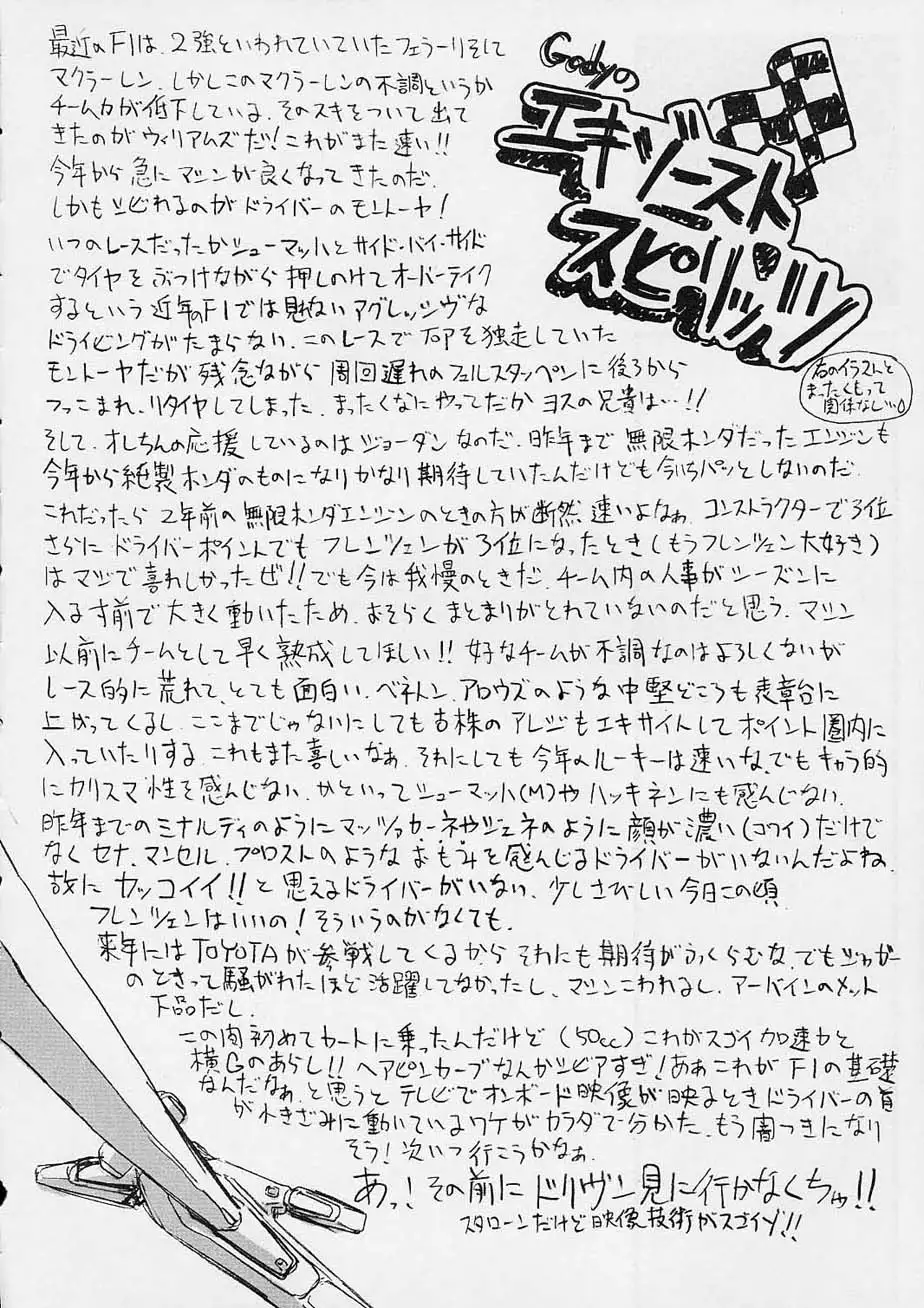 Godyの
エキゾースト
スピリッツ
右のイラストと
まったくもって
関係なし…。
最近のF1は、2強といわれていていたフェラーリそして
マクラーレン、しかしこのマクラーレンの不調というか
チーム力が低下している、そのスキをついて出て
きたのがウィリアムズだ!これがまた速い!!
今年から急にマシンが良くなってきたのだ、
しかもシビれるのがドライバーのモントーヤ!
いつのレースだったかシューマッハとサイド・バイ・サイド
でタイヤをぶつけながら押しのけてオーバーテイク
するという近年のF1では見ないアグレッシヴな
ドライビングがたまらない、このレースでTOPを独走していた
モントーヤだが残念ながら周回遅れのフェルスタッペンに後ろから
つっこまれ、リタイヤしてしまった、まったくなにやってだかヨスの兄貴は…!!
そして、オレちんの応援しているのはジョーダンなのだ、昨年まで無限ホンダだったエンジンも
今年から純製ホンダのものになりかなり期待していたんだけども今いちパッとしないのだ、
これだったら2年前の無限ホンダエンジンのときの方が断然速いよなぁ、コンストラクターで3位
さらにドライバーポイントでもフレンツェンが3位になったとき(もうフレンツェン大好き)
はマジで喜れしかったぜ!!でも今は我慢のときだ、チーム内の人事がシーズンに
入るす前で大きく動いたため、おそらくまとまりがとれていないのだと思う、マシン
以前にチームとして早く熟成してほしい!!好なチームが不調なのはよろしくないが
レース的に荒れて、とても面白い、ベネトン、アロウズのような中堅どころも表彰台に
上がってくるし、ここまでじゃないにしても古株のアレジもエキサイトしてポイント圏内に
入っていたりする、これもまた喜しいなぁ、それにしても今年のルーキーは速いな、でもキャラ的
にカリスマ性を感んじない、かといってシューマッハ(M)やハッキネンにも感んじない、
昨年までのミナルディのようにマッツァカーネやジェネのように顔が濃い(コワイ)だけで
なくセナ、マンセル、プロストのようなおもみを感んじるドライバーがいないんだよね
故にカッコイイ!!と思えるドライバーがいない、少しさびしい今日この頃
フレンツェンはいいの!そういうのがなくても、
来年にはTOYOTAが参戦してくるからそれにも期待がふくらむな、でもジャガー
のときって騒がわたほど活躍してなかったし、マシンこわれるし、アーバインのメット
下品だし、
この間初めてカートに乗ったんだけど(50cc)これがスゴイ加速力と
横Gのあらし!!ヘアピンカーブなんかシビアすぎ!あぁこれがF1の基礎
なんだなぁ、と思うとテレビでオンボード映像が映るときドライバーの首
が小きざみに動いているワケがカラダで分かた、もう闇つきになり
そう!次いつ行こうかなぁ、
あっ!その前にドリヴン見に行かなくちゃ!!
スタローンだけど映像技術がスゴイゾ!!